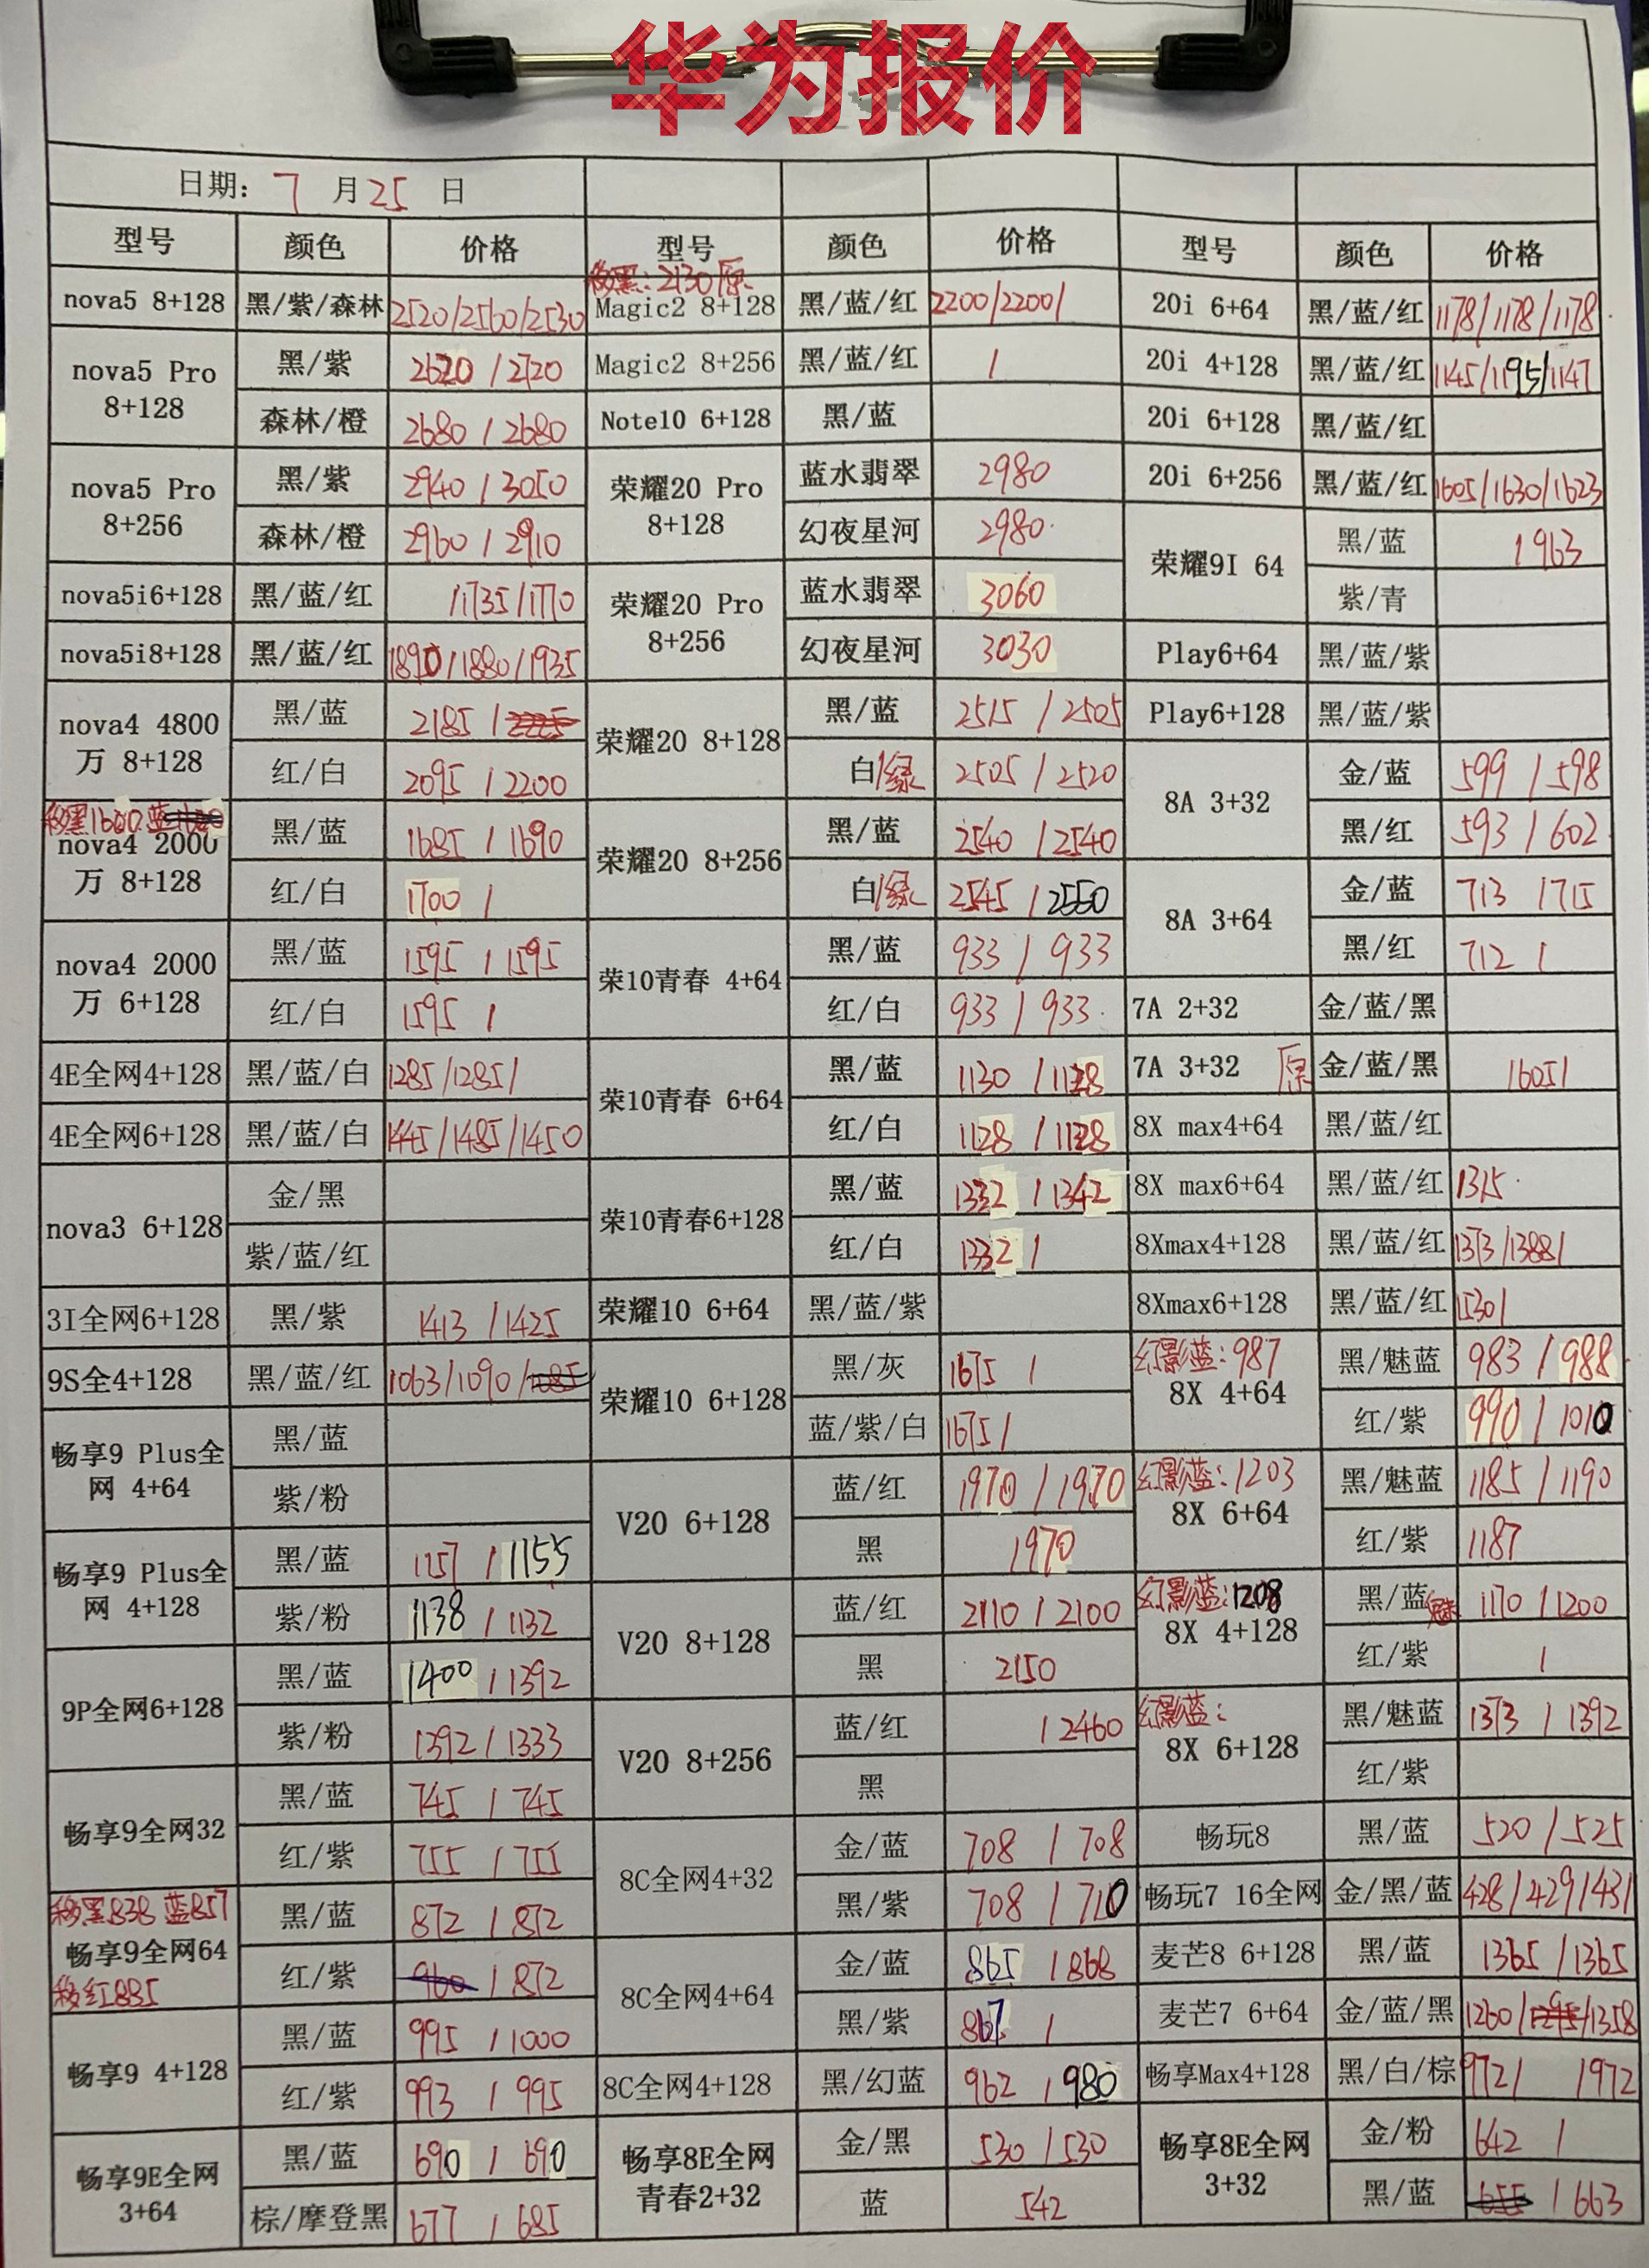 华为报价
日期: 7 月 25 日
型号 颜色 价格 型号 颜色 价格 型号 颜色 价格
移黑:2130原
nova5 8+128 黑/紫/森林 2520/2560/2530 Magic2 8+128 黑/蓝/红 2200/2200/ 20i 6+64 黑/蓝/红 1178/1178/1178
nova5 Pro 8+128 黑/紫 2620/2720 Magic2 8+256 黑/蓝/红 / 20i 4+128 黑/蓝/红 1145/1195/1147
森林/橙 2680/2680 Note10 6+128 黑/蓝 20i 6+128 黑/蓝/红
nova5 Pro 8+256 黑/紫 2940/3050 荣耀20 Pro 8+128 蓝水翡翠 2980 20i 6+256 黑/蓝/红 1605/1630/1623
森林/橙 2960/2910 幻夜星河 2980 荣耀9I 64 黑/蓝 1963
nova5i6+128 黑/蓝/红 /1735/1770 荣耀20 Pro 8+256 蓝水翡翠 3060 紫/青
nova5i8+128 黑/蓝/红 1890/1880/1935 幻夜星河 3030 Play6+64 黑/蓝/紫
nova4 4800万 8+128 黑/蓝 2185/ 荣耀20 8+128 黑/蓝 2515/2505 Play6+128 黑/蓝/紫
红/白 2095/2200 白/绿 2505/2520 8A 3+32 金/蓝 599/598
移黑1600 蓝
nova4 2000万 8+128 黑/蓝 1685/1690 荣耀20 8+256 黑/蓝 2540/2540 黑/红 593/602
红/白 1700/ 白/绿 2545/2550 8A 3+64 金/蓝 713/715
nova4 2000万 6+128 黑/蓝 1595/1595 荣10青春 4+64 黑/蓝 933/933 黑/红 712/
红/白 1595/ 红/白 933/933 7A 2+32 金/蓝/黑
4E全网4+128 黑/蓝/白 1285/1285/ 荣10青春 6+64 黑/蓝 1130/1128 7A 3+32 原 金/蓝/黑 /605/
4E全网6+128 黑/蓝/白 1445/1485/1450 红/白 1128/1128 8X max4+64 黑/蓝/红
nova3 6+128 金/黑 荣10青春6+128 黑/蓝 1332/1342 8X max6+64 黑/蓝/红 1315
紫/蓝/红 红/白 1332/ 8Xmax4+128 黑/蓝/红 1373/1388/
3I全网6+128 黑/紫 1413/1425 荣耀10 6+64 黑/蓝/紫 8Xmax6+128 黑/蓝/红 1530/
9S全4+128 黑/蓝/红 1063/1090/1085 荣耀10 6+128 黑/灰 1675/ 幻影蓝:987 8X 4+64 黑/魅蓝 983/988
畅享9 Plus全网 4+64 黑/蓝 蓝/紫/白 1675/ 红/紫 990/1010
紫/粉 V20 6+128 蓝/红 1970/1970 幻影蓝:1203 8X 6+64 黑/魅蓝 1185/1190
畅享9 Plus全网 4+128 黑/蓝 1157/1155 黑 1970 红/紫 1187
紫/粉 1138/1132 V20 8+128 蓝/红 2110/2100 幻影蓝:1208 8X 4+128 黑/魅蓝 1170/1200
9P全网6+128 黑/蓝 1400/1392 黑 2150 红/紫 /
紫/粉 1392/1333 V20 8+256 蓝/红 /2460 幻影蓝: 8X 6+128 黑/魅蓝 1373/1392
畅享9全网32 黑/蓝 745/745 黑 红/紫
红/紫 755/755 8C全网4+32 金/蓝 708/708 畅玩8 黑/蓝 520/525
移黑838 蓝857
畅享9全网64 黑/蓝 872/872 黑/紫 708/710 畅玩7 16全网 金/黑/蓝 428/429/431
移红885
红/紫 960/872 8C全网4+64 金/蓝 865/868 麦芒8 6+128 黑/蓝 1365/1365
畅享9 4+128 黑/蓝 995/1000 黑/紫 867/ 麦芒7 6+64 金/蓝/黑 1260/1295/1358
红/紫 993/995 8C全网4+128 黑/幻蓝 962/980 畅享Max4+128 黑/白/棕 972/ /972
畅享9E全网 3+64 黑/蓝 690/690 畅享8E全网青春2+32 金/黑 530/530 畅享8E全网 3+32 金/粉 642/
棕/摩登黑 677/685 蓝 542 黑/蓝 655/663